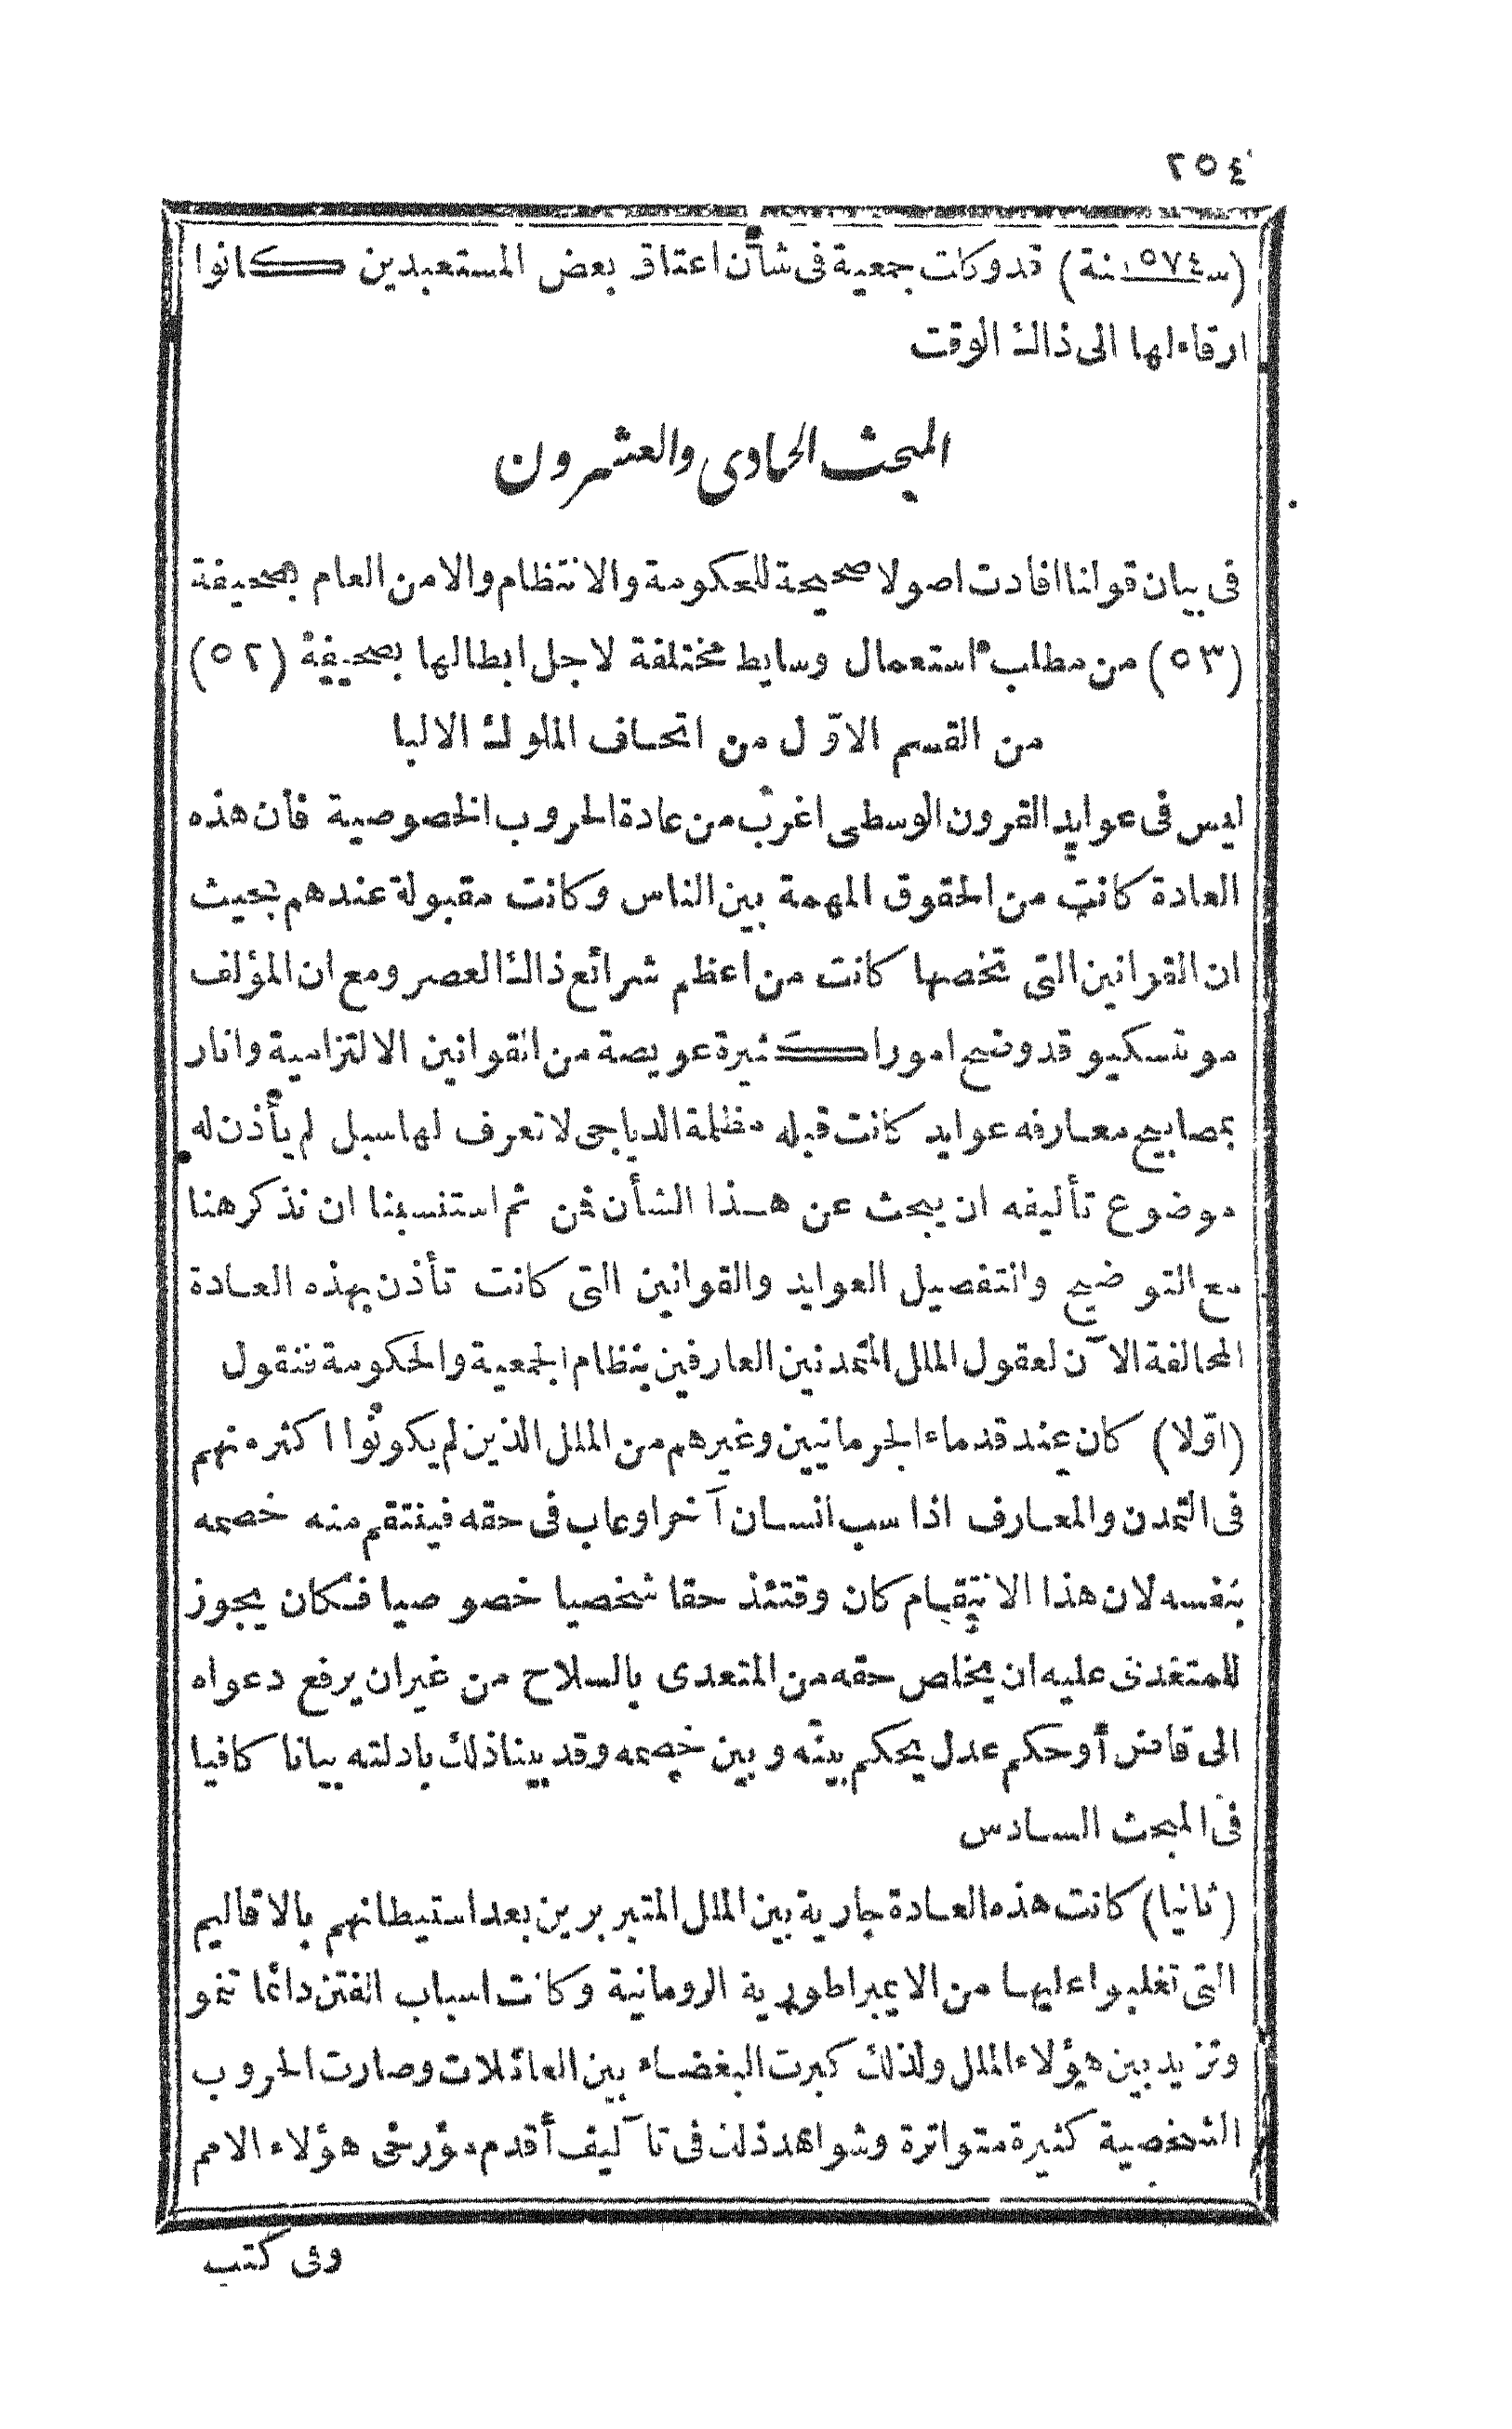 ٢٥٤
(سنة ١٥٧٤) قد وكلت جمعية فى شأن اعتاق بعض المستعبدين كانوا
ارقاء لها الى ذالك الوقت
المبحث الحادى والعشرون
فى بيان قولنا افادت اصولا صحيحة للحكومة والانتظام والامن العام بصحيفة
(٥٣) من مطلب استعمال وسايط مختلفة لاجل ابطالها بصحيفة (٥٢)
من القسم الاوّل من اتحاف الملوك الالبا
ليس فى عوايد القرون الوسطى اغرب من عادة الحروب الخصوصية فأن هذه
العادة كانت من الحقوق المهمة بين الناس وكانت مقبولة عندهم بحيث
ان القوانين التى تخصها كانت من اعظم شرائع ذالك العصر ومع ان المؤلف
مونتسكيو قد وضح امورا كثيرة عويصة من القوانين الالتزامية وانار
بمصابيح معارفه عوايد كانت قبله مظلمة الدياجى لا تعرف لها سبل لم يأذن له
موضوع تأليفه ان يبحث عن هذا الشأن فمن ثم استنسبنا ان نذكر هنا
مع التوضيح والتفصيل العوايد والقوانين التى كانت تأذن بهذه العادة
المخالفة الآن لعقول الملل المتمدنين العارفين بنظام الجمعية والحكومة فنقول
(اوّلا) كان عند قدماء الجرمانيين وغيرهم من الملل الذين لم يكونوا اكثر منهم
فى التمدن والمعارف اذا سب انسان آخر او عاب فى حقه فينتقم منه خصمه
بنفسه لان هذا الانتقام كان وقتئذ حقا شخصيا خصوصيا فكان يجوز
للمتعدى عليه ان يخلص حقه من المتعدى بالسلاح من غير ان يرفع دعواه
الى قاض أو حكم عدل يحكم بينه وبين خصمه وقد بينا ذلك بادلته بيانا كافيا
فى المبحث السادس
(ثانيا) كانت هذه العادة جارية بين الملل المتبربرين بعد استيطانهم بالاقاليم
التى تغلبوا عليها من الايمبراطورية الرومانية وكانت اسباب الفتن دائما تنمو
وتزيد بين هؤلاء الملل ولذلك كبرت البغضاء بين العائلات وصارت الحروب
الشخصية كثيرة متواترة وشواهد ذلك فى تآليف أقدم مؤرخى هؤلاء الامم
وفى كتب